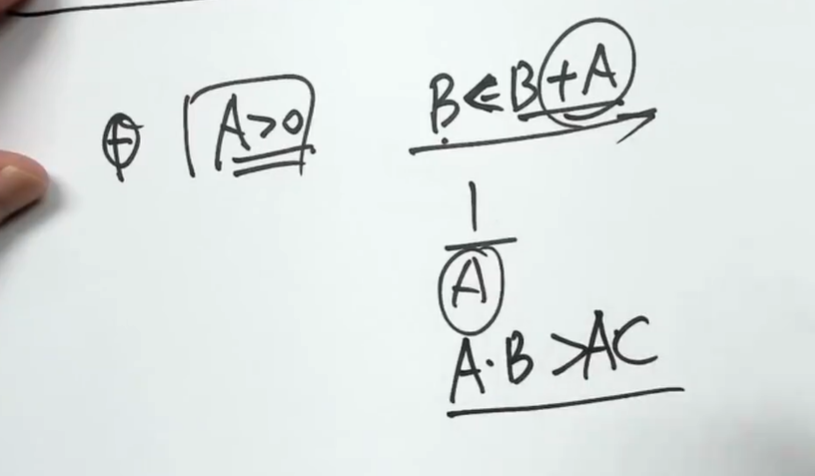 ⊕ A>0
B<B+A
1/A
A·B>AC